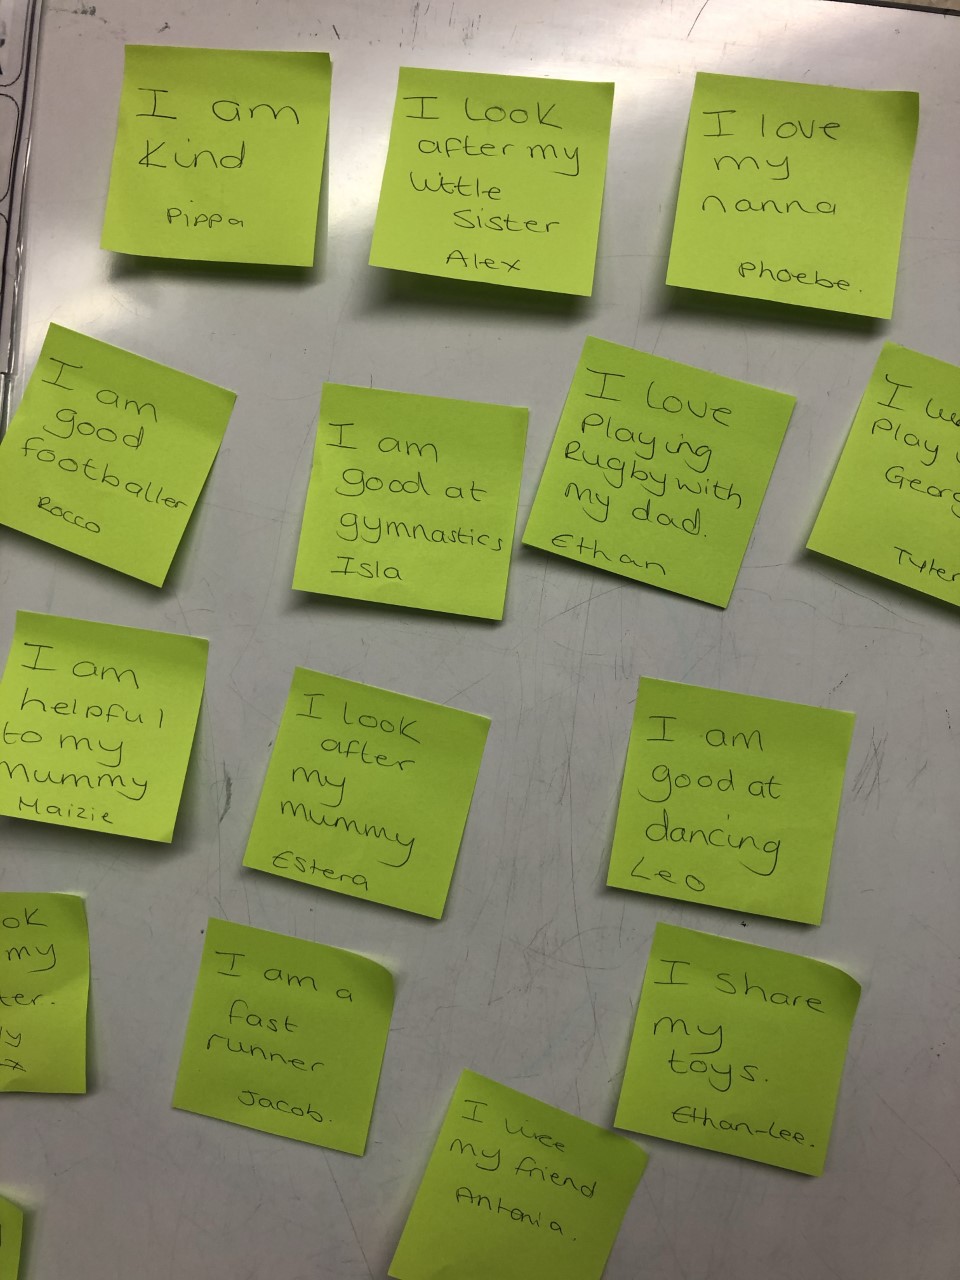 I am
kind
Pippa
I look
after my
little
Sister
Alex
I love
my
nanna
Phoebe.
I am
good
footballer
Rocco
I am
good at
gymnastics
Isla
I love
Playing
Rugby with
my dad.
Ethan
I
Play
Tyler
I am
helpful
to my
mummy
Maizie
I look
after
my
mummy
Estera
I am
good at
dancing
Leo
my
I am a
fast
runner
Jacob.
I share
my
toys.
Ethan-Lee.
I like
my friend
Antonia.